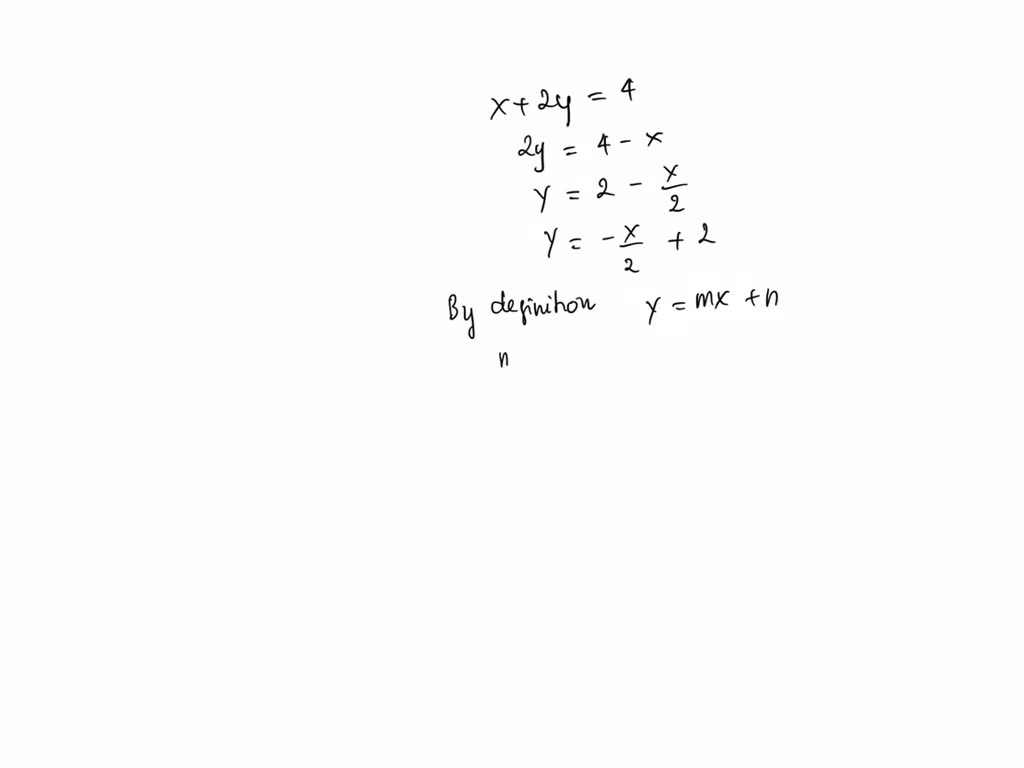 x + 2y = 4
2y = 4 - x
y = 2 - x/2
y = -x/2 + 2
By definition y = mx + n
n